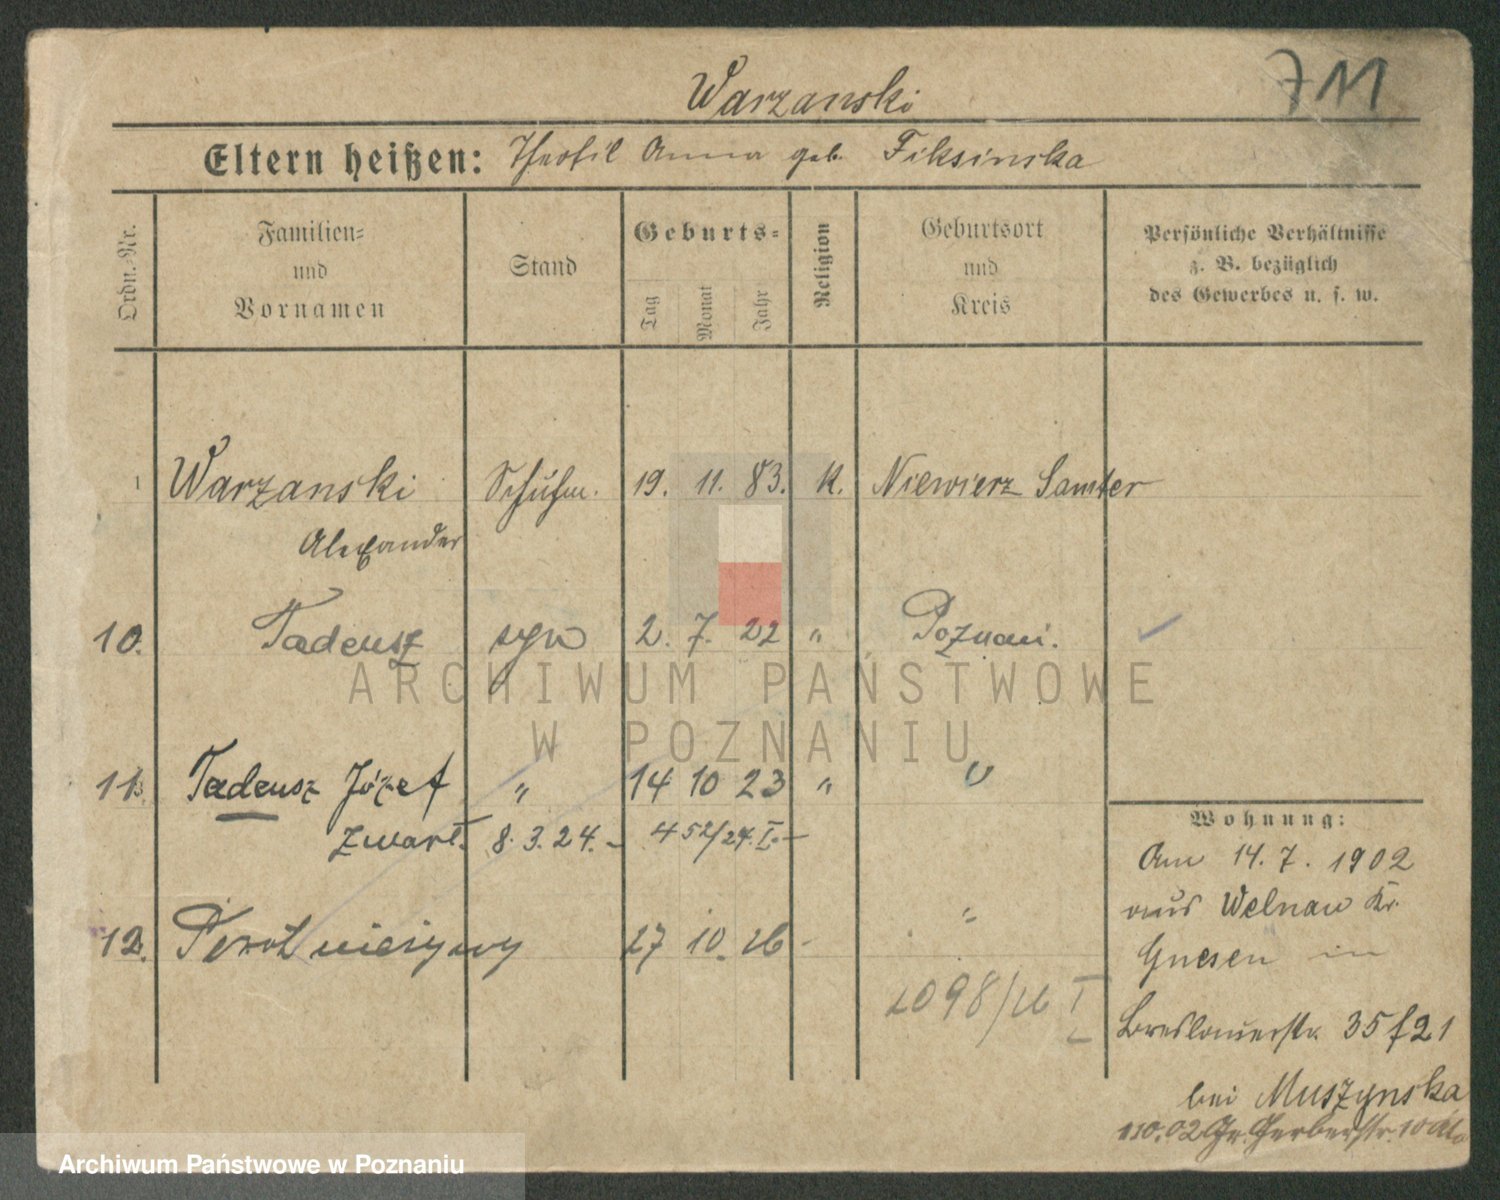 711
Warzanski
Eltern heißen: Theofil Anna geb. Fiksinska
Ordn.-Nr.
Familien- und Vornamen
Stand
Geburts-
Tag Monat Jahr
Religion
Geburtsort und Kreis
Persönliche Verhältnisse z. B. bezüglich des Gewerbes u. s. w.
1 Warzanski Schuhm. 19. 11. 83. K. Niewierz Samter
Alexander
10. Tadeusz syn 2. 7. 22 " Poznań.
11. Tadeusz Józef " 14 10 23 " "
Zmarł. 8. 3. 24. - 452/24. I. -
12. Płód nieżywy 27 10. 26 - "
2098/26 I
Wohnung:
Am 14. 7. 1902
aus Welnau Kr.
Gnesen in
Breslauerstr. 35
bei Muszynska
Gr. Gerberstr. 10
ARCHIWUM PAŃSTWOWE
W POZNANIU
Archiwum Państwowe w Poznaniu